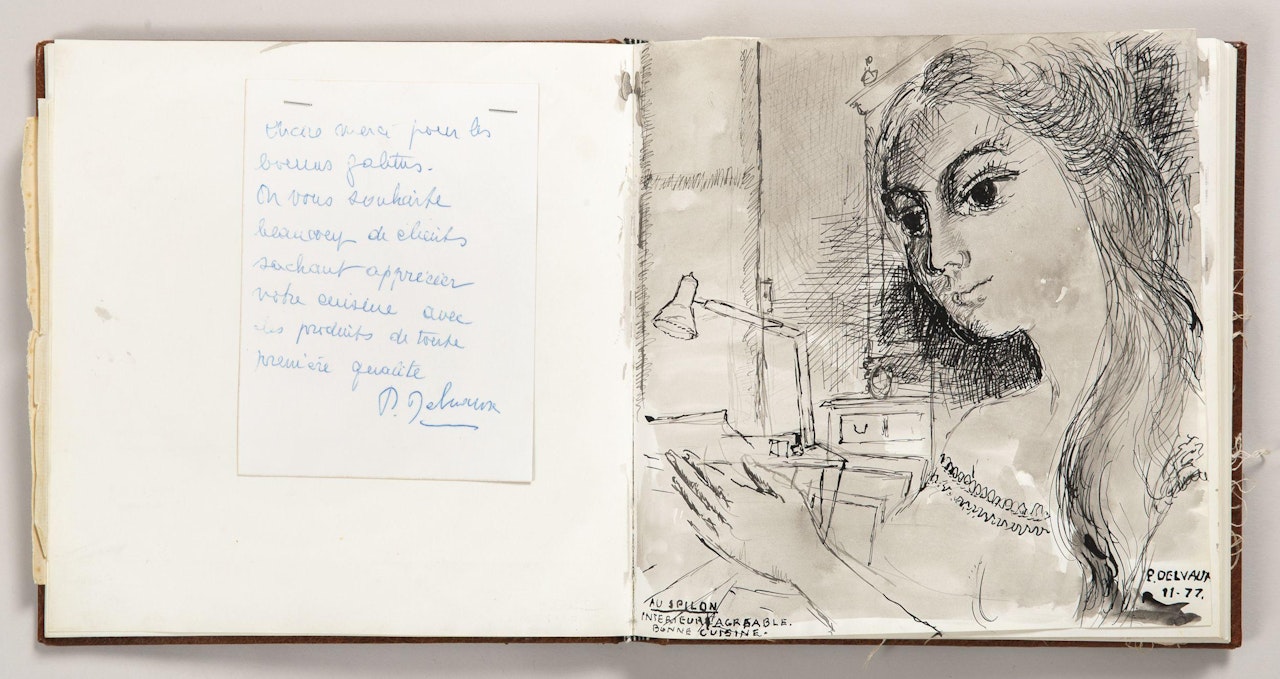 Encore merci pour les
bonnes
On vous souhaite
beaucoup de clients
sachant apprécier
votre cuisine avec
des produits de toute
première qualité
P. Delvaux
P. DELVAUX
11-77.
AU SPILON
INTERIEUR AGREABLE.
BONNE CUISINE.